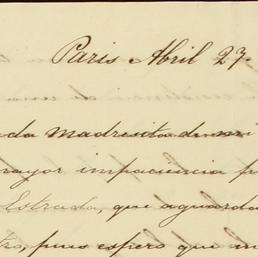 Paris Abril 27.
da madrecita de mi
mayor impaciencia p
Estrada, que aguarda
tro, pues espero que m